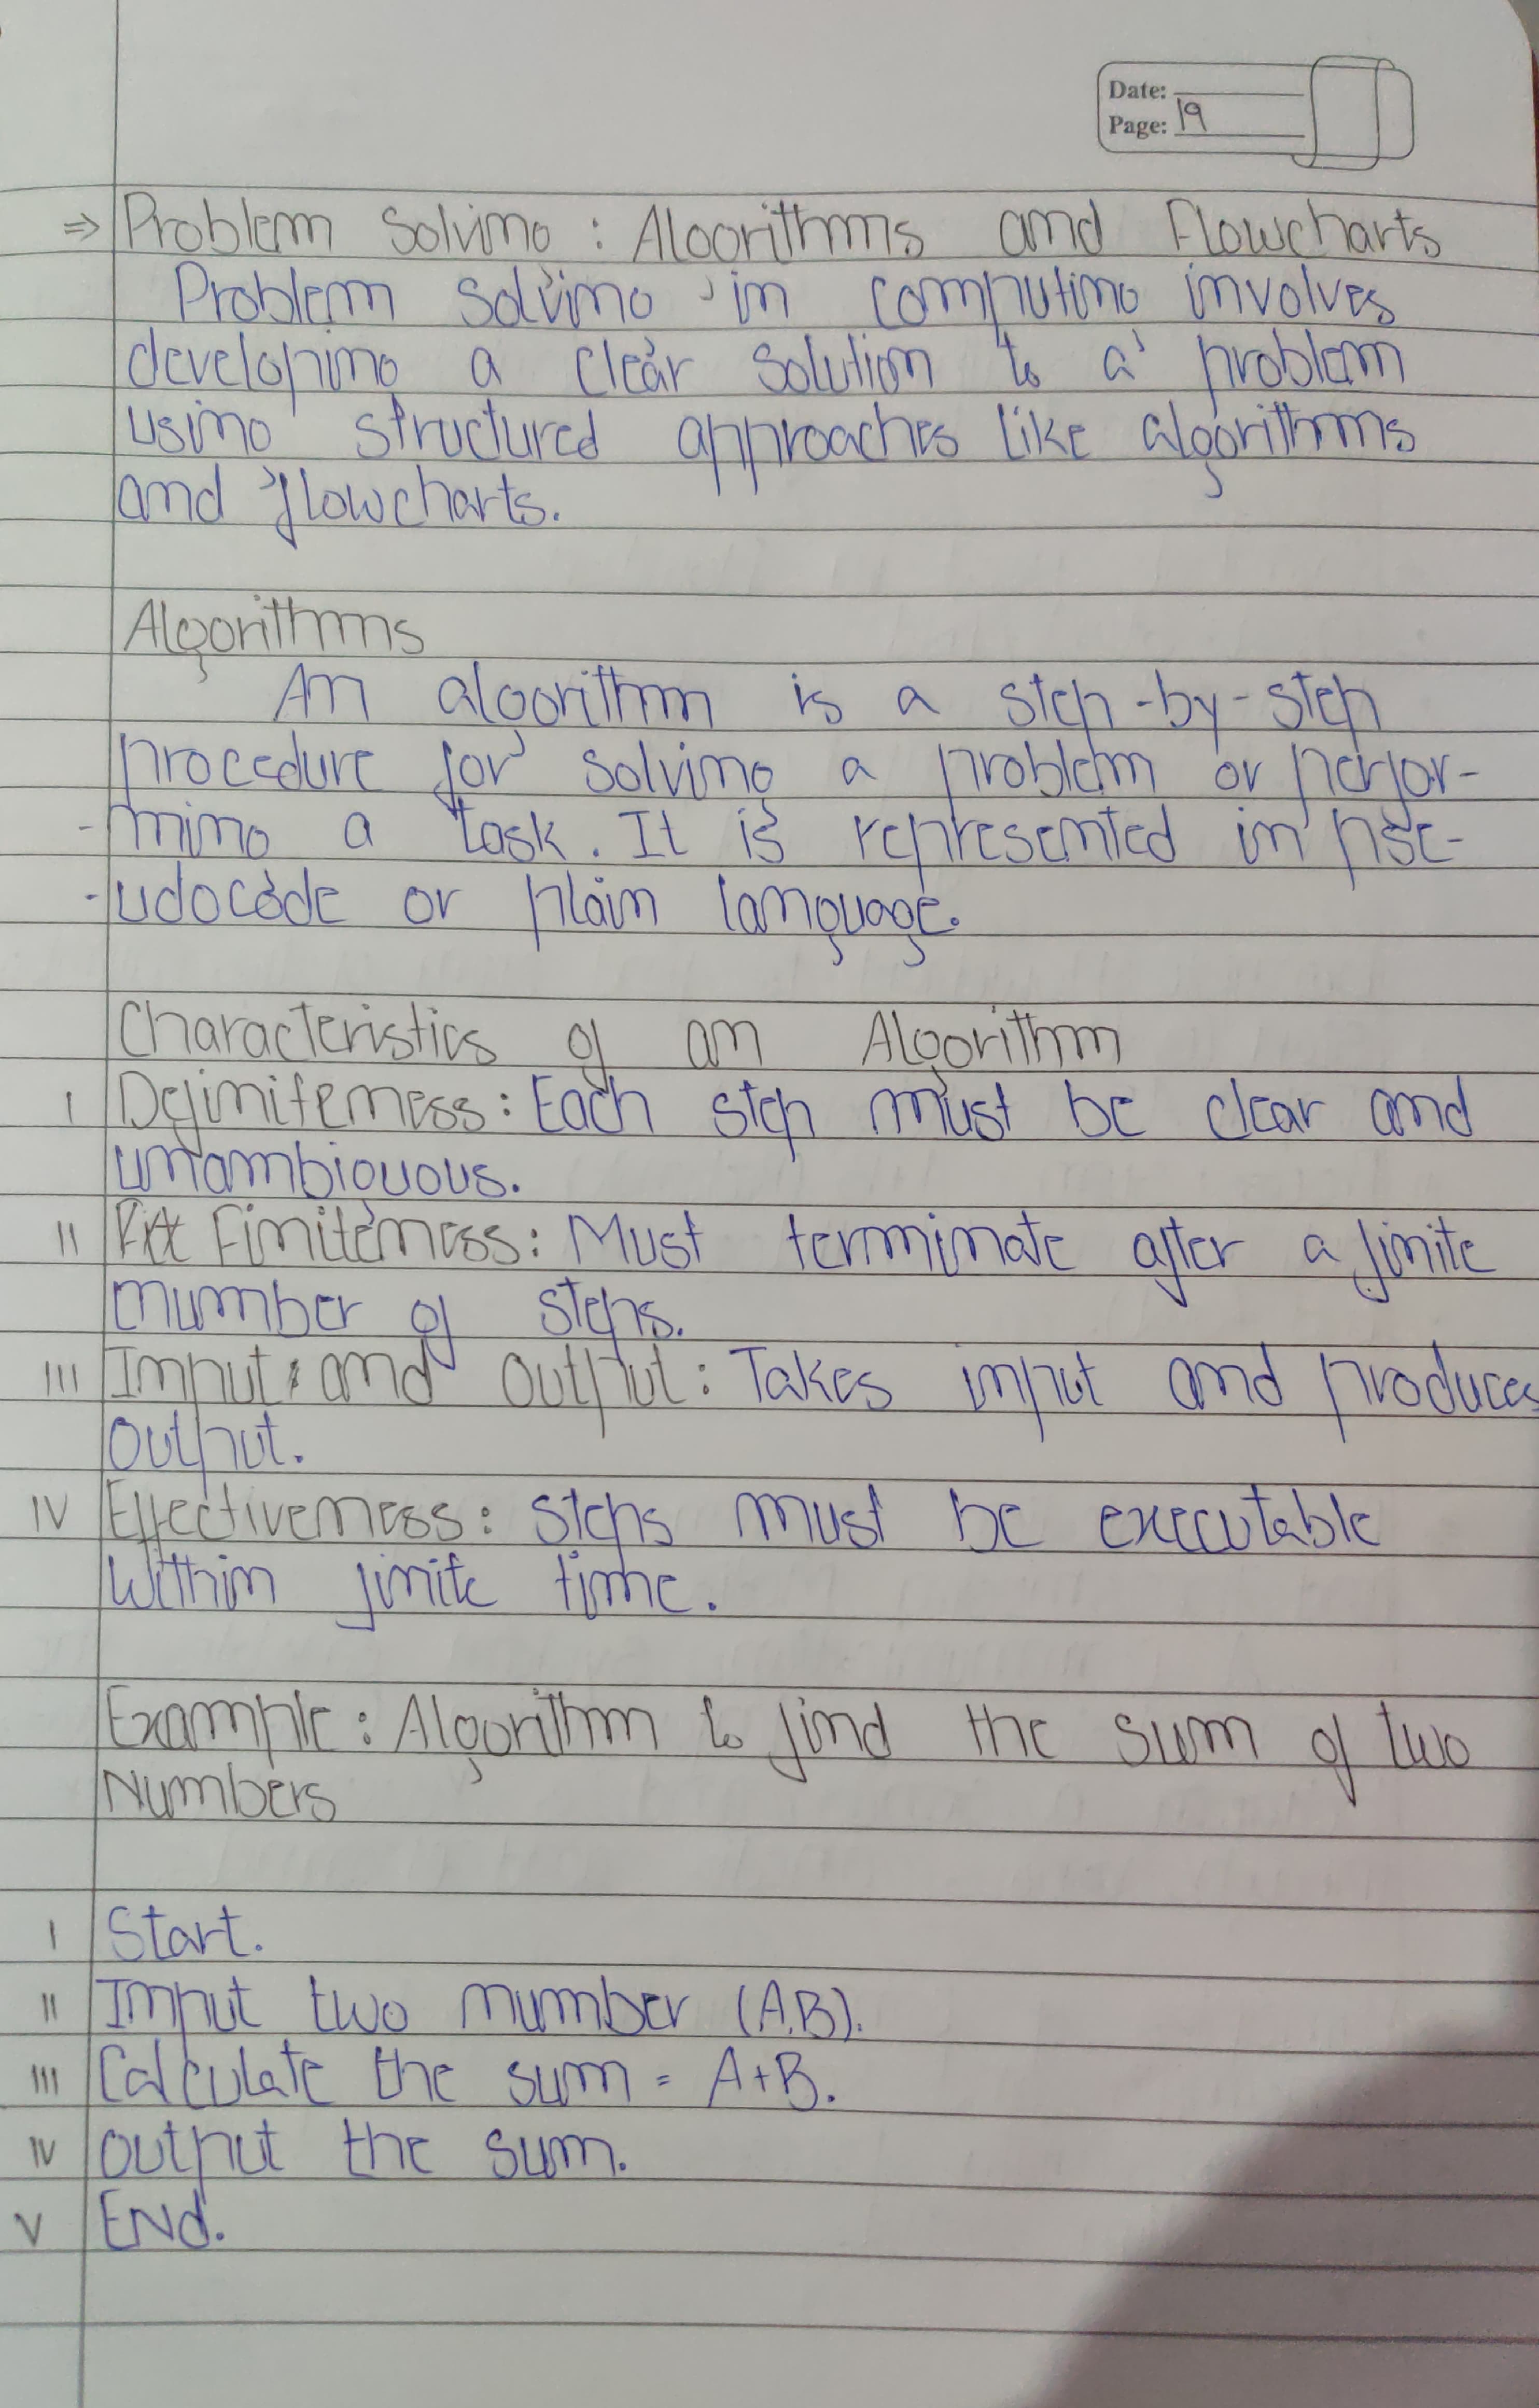 Date:
Page: 19
⇒ Problem Solving : Algorithms and Flowcharts
Problem solving in computing involves
developing a clear solution to a problem
using structured approaches like algorithms
and flowcharts.
Algorithms
An algorithm is a step-by-step
procedure for solving a problem or perfor-
-ming a task. It is represented in pse-
-udocode or plain language.
Characteristics of an Algorithm
I Definiteness: Each step must be clear and
unambiguous.
II Finiteness: Must terminate after a finite
number of steps.
III Input and output: Takes input and produces
output.
IV Effectiveness: Steps must be executable
within finite time.
Example: Algorithm to find the sum of two
Numbers
I Start.
II Input two number (A,B).
III Calculate the sum = A+B.
IV Output the sum.
V End.